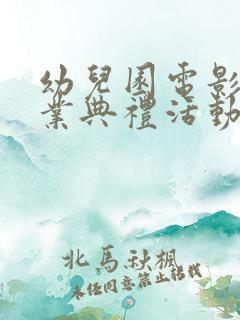 幼兒園電影
業典禮活動
北馬秋楓
未经同意禁止搬载